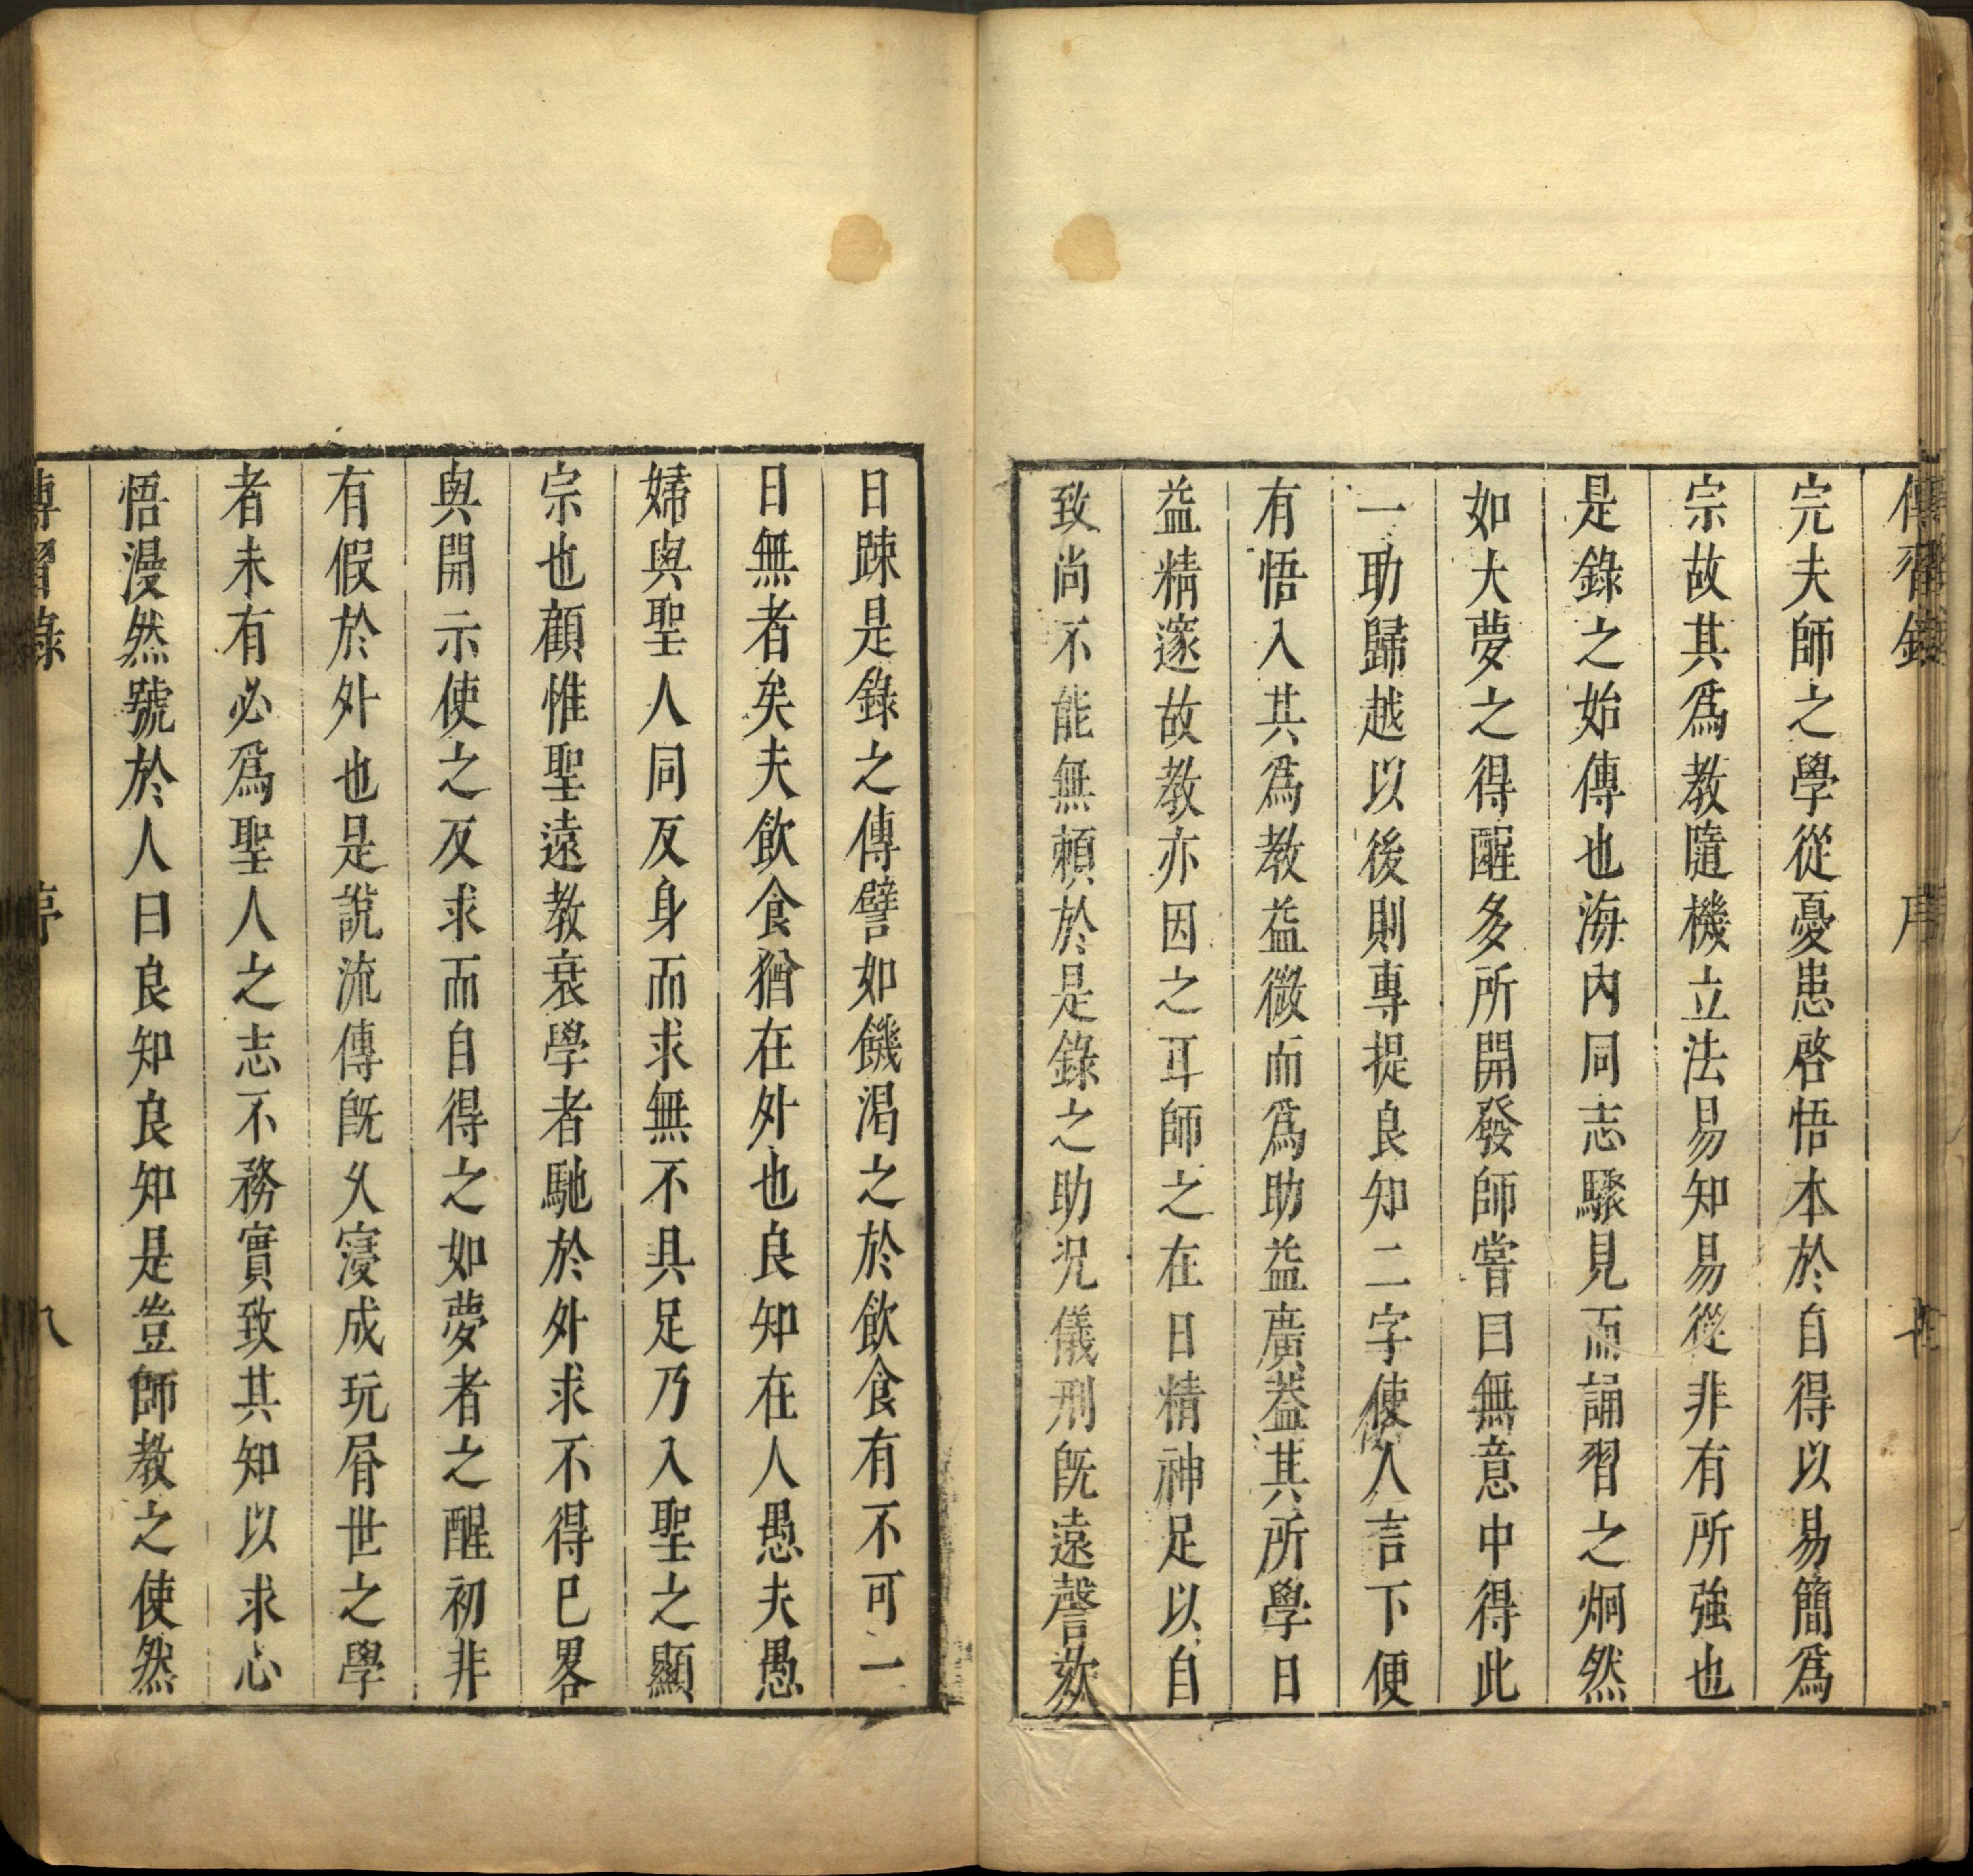 傳習錄 序 七
完夫師之學從憂患啓悟本於自得以易簡爲
宗故其爲教隨機立法易知易從非有所強也
是錄之始傳也海內同志驟見而誦習之炯然
如大夢之得醒多所開發師嘗曰無意中得此
一助歸越以後則專提良知二字使人言下便
有悟入其爲教益微而爲助益廣葢其所學日
益精邃故教亦因之耳師之在日精神足以自
致尚不能無賴於是錄之助况儀刑旣遠謦欬
日踈是錄之傳譬如饑渴之於飲食有不可一
日無者矣夫飲食猶在外也良知在人愚夫愚
婦與聖人同反身而求無不具足乃入聖之顯
宗也顧惟聖遠教衰學者馳於外求不得已畧
與開示使之反求而自得之如夢者之醒初非
有假於外也是說流傳旣乆寖成玩屑世之學
者未有必爲聖人之志不務實致其知以求心
悟漫然號於人曰良知良知是豈師教之使然
傳習錄 序 八